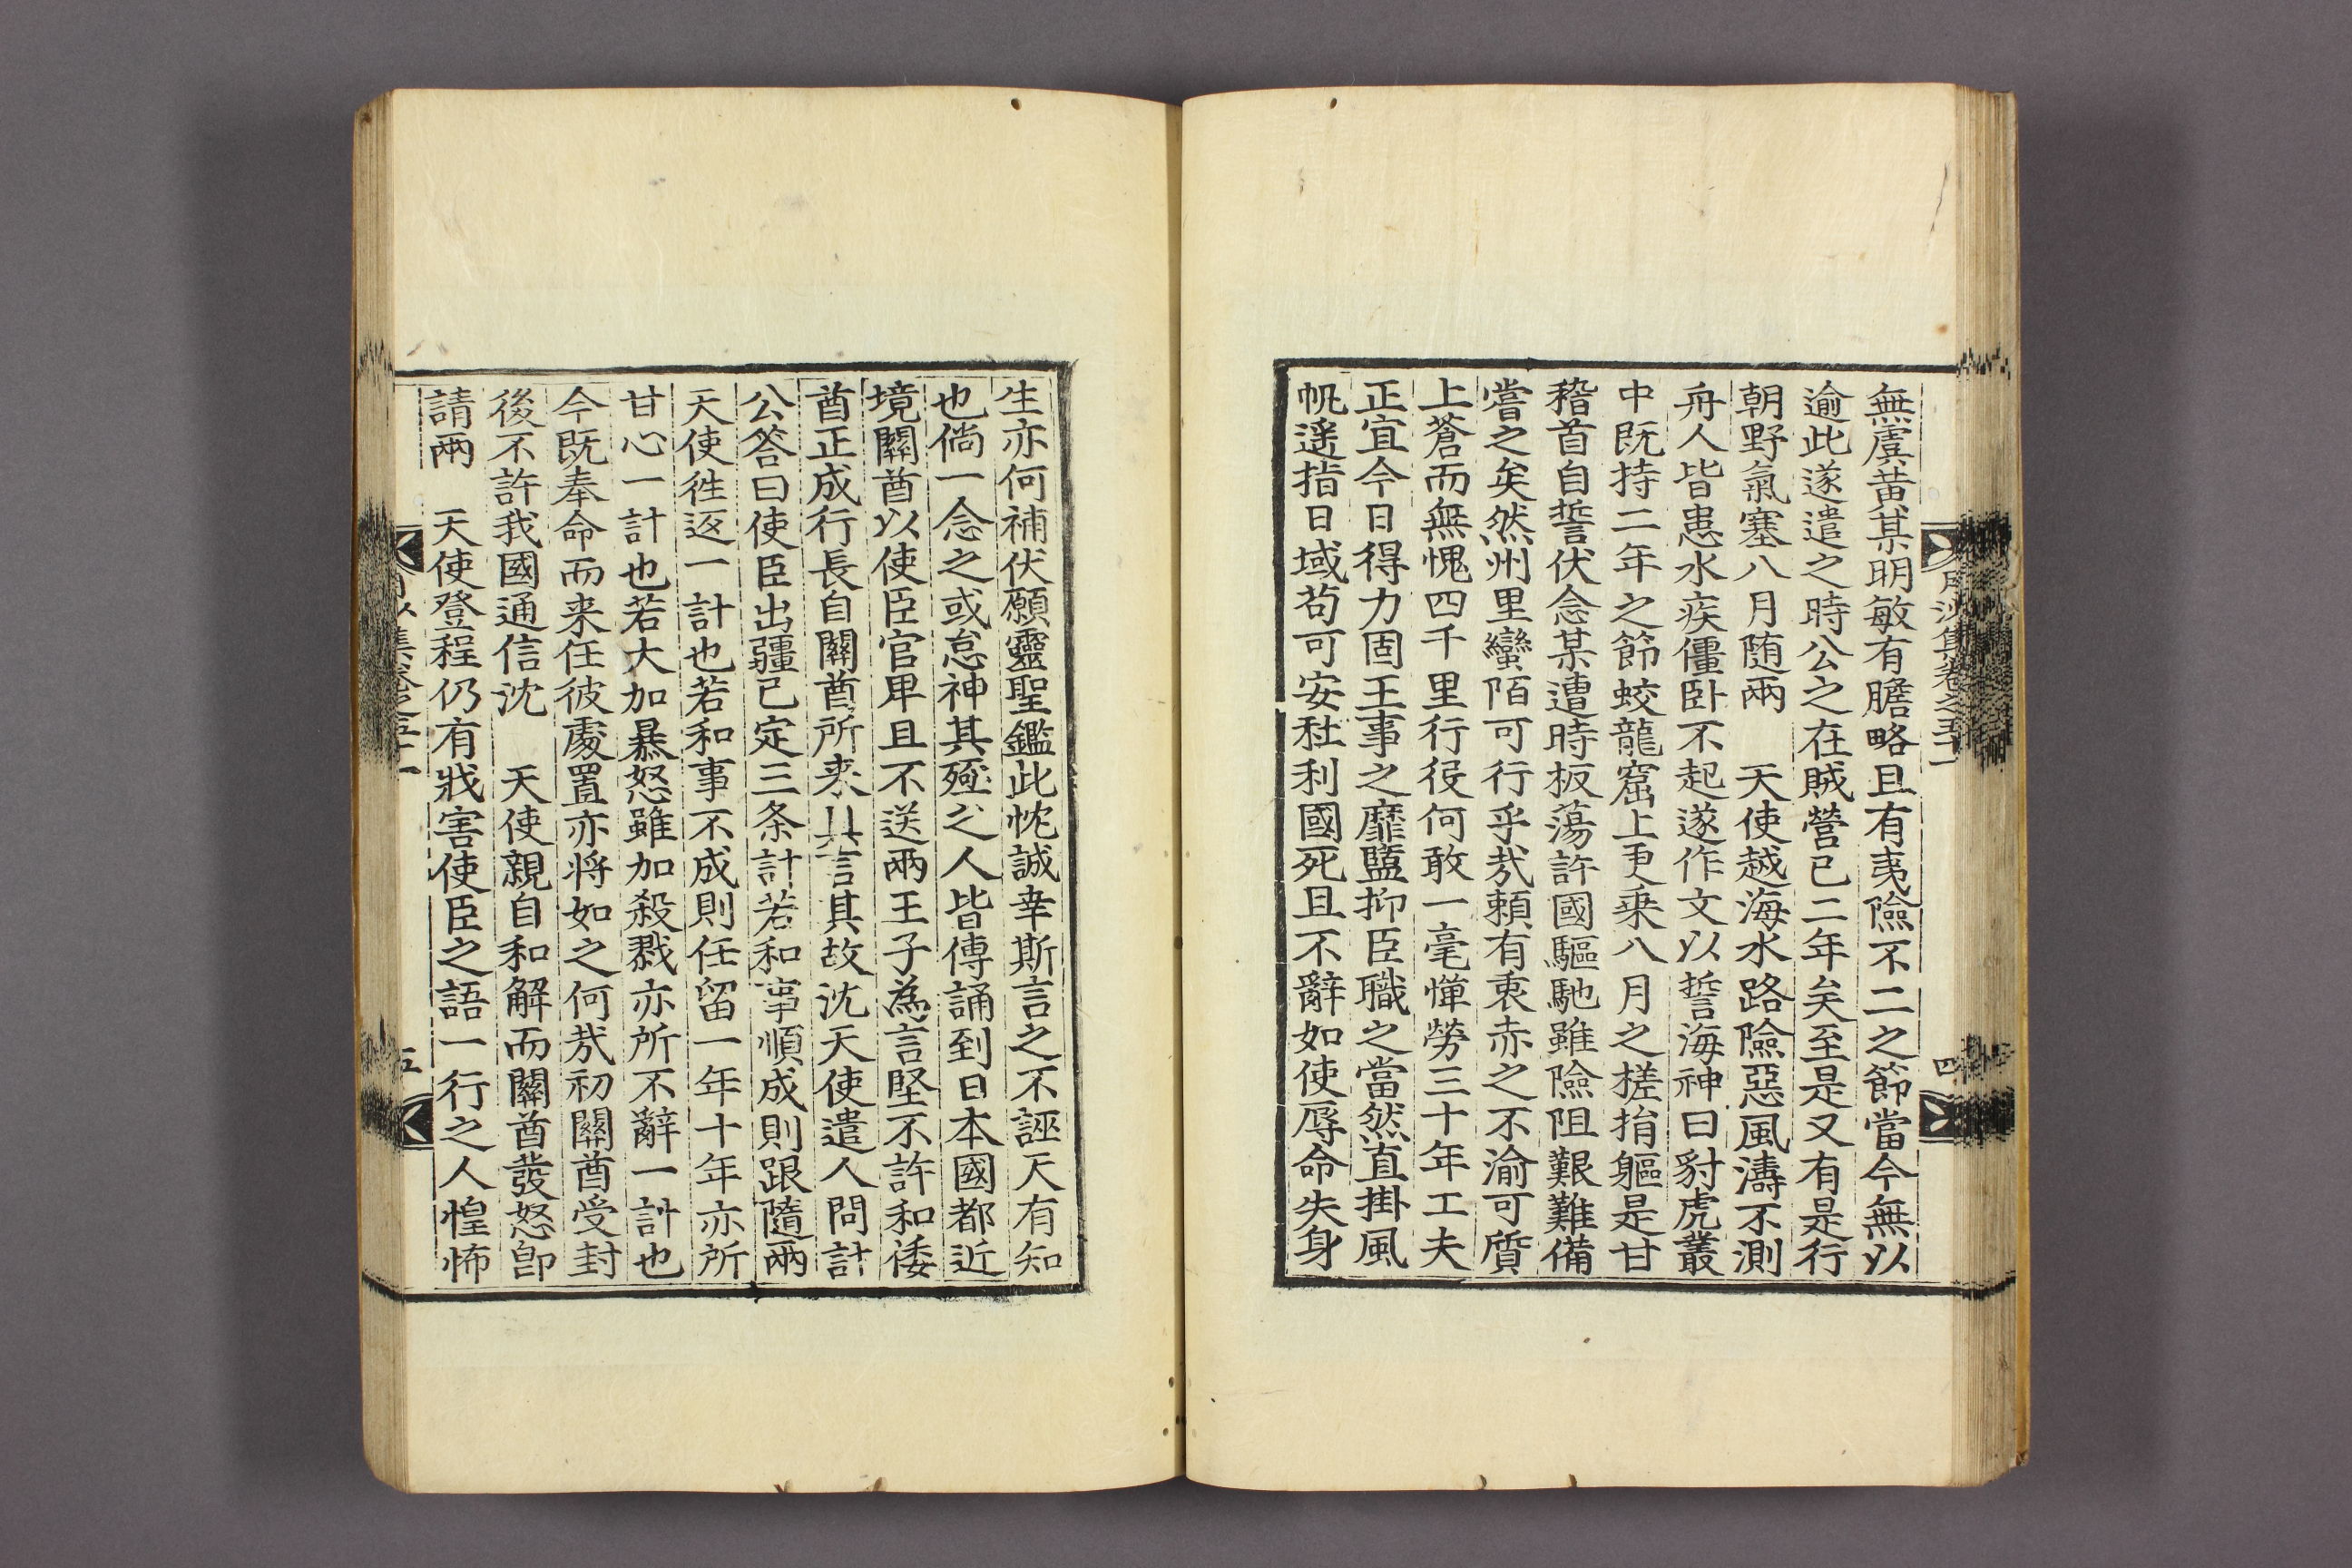 無虞黃某明敏有膽略且有夷險不二之節當今無以
逾此遂遣之時公之在賊營已二年矣至是又有是行
朝野氣塞八月随兩　天使越海水路險惡風濤不測
舟人皆患水疾僵卧不起遂作文以誓海神曰豺虎叢
中既持二年之節蛟龍窟上更乗八月之槎捐軀是甘
稽首自誓伏念某遭時板蕩許國驅馳雖險阻艱難備
嘗之矣然州里蠻陌可行乎㢤頼有衷赤之不渝可質
上蒼而無愧四千里行役何敢一毫憚勞三十年工夫
正宜今日得力固王事之靡盬抑臣職之當然直掛風
帆遥指日域苟可安社利國死且不辭如使辱命失身
月沙集卷之五十一
四
生亦何補伏願靈聖鑑此忱誠幸斯言之不誣天有知
也倘一念之或怠神其殛之人皆傳誦到日本國都近
境關酋以使臣官卑且不送兩王子為言堅不許和倭
酋正成行長自關酋所来具言其故沈天使遣人問計
公答曰使臣出疆已定三条計若和事順成則跟隨兩
天使徃返一計也若和事不成則任留一年十年亦所
甘心一計也若大加暴怒雖加殺戮亦所不辭一計也
今既奉命而来任彼處置亦将如之何㢤初關酋受封
後不許我國通信沈　天使親自和解而關酋發怒卽
請兩　天使登程仍有戕害使臣之語一行之人惶怖
集卷之五十一
五